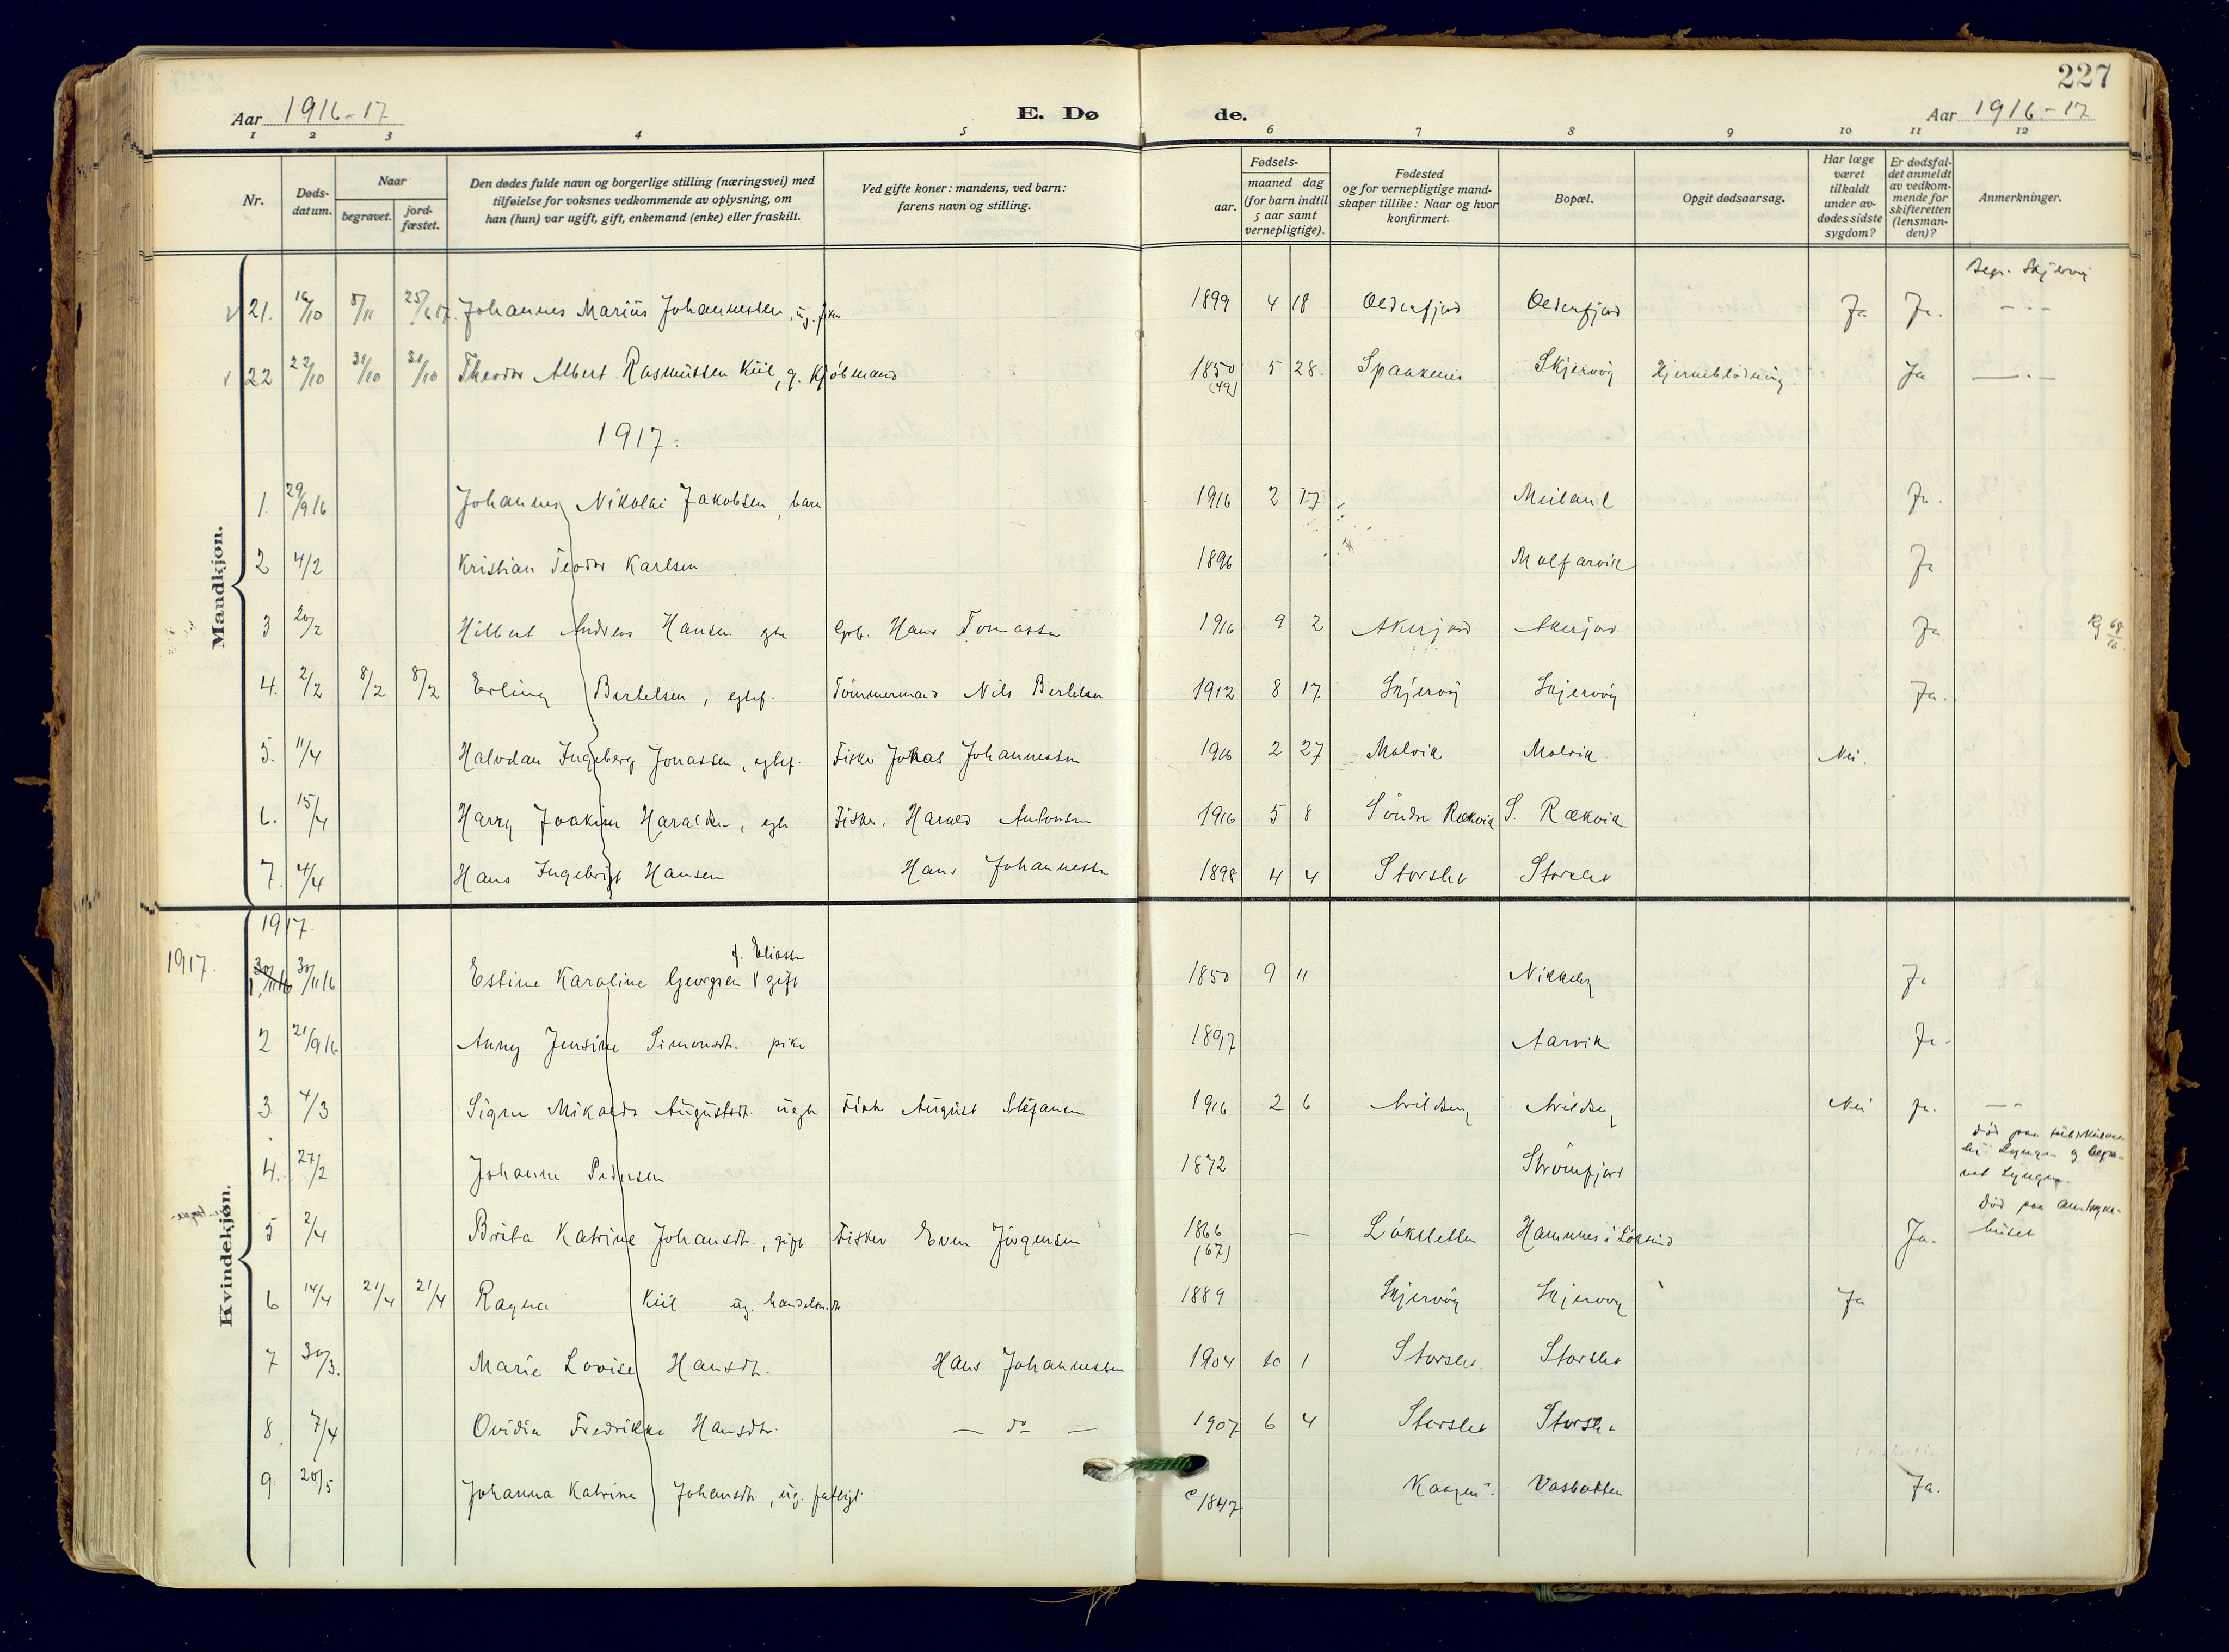 227
Aar 1916-17
E. Dø
de.
Aar 1916-17
1 2 3 4 5 6 7 8 9 10 11 12
Nr.
Døds-
datum.
Naar
begravet.
jord-
fæstet.
Den dødes fulde navn og borgerlige stilling (næringsvei) med
tilføielse for voksnes vedkommende av oplysning, om
han (hun) var ugift, gift, enkemand (enke) eller fraskilt.
Ved gifte koner: mandens, ved barn:
farens navn og stilling.
Fødsels-
aar.
maaned dag
(for barn indtil
5 aar samt
vernepligtige).
Fødested
og for vernepligtige mand-
skaper tillike: Naar og hvor
konfirmert.
Bopæl.
Opgit dødsaarsag.
Har læge
været
tilkaldt
under av-
dødes sidste
sygdom?
Er dødsfal-
det anmeldt
av vedkom-
mende for
skifteretten
(lensman-
den)?
Anmerkninger.
Mandkjøn.
Begr. Skjervøy
21. 16/10 8/11 25/6 17. Johannes Marius Johannessen, ug. 1899 4 18 Olderfjord Olderfjord Ja Ja. — " —
22 22/10 31/10 31/10 Theodor Albert Rasmussen Kiil, g. Kjøbmand 1850 5 28. Spaakenes Skjervøy Hjerneblødning Ja — " —
(49)
1917.
1. 29/9 16 Johannes Nikolai Jakobsen, barn 1916 2 17 Meiland Ja.
2 4/2 Kristian Teodor Karlsen 1896 Ja
3 20/2 Hilbert Andreas Hansen egte Hans Tomassen 1916 9 2 Akerjord Akerjord Ja
4. 2/2 8/2 8/2 Erling Bertelsen, egtef. Tömmermand Nils Bertelsen 1912 8 17 Skjervöy Skjervöy Ja.
5. 11/4 Halvdan Ingeberg Jonassen, egtef. Fisker Jonas Johannessen 1916 2 27 Molvik Molvik Nei.
6. 15/4 Harry Joakim Haraldsen, egte Fisker. Harald Antonsen 1916 5 8 Söndre Rækvik S. Rækvik
7. 4/4 Hans Ingebrigt Hansen Hans Johannessen 1898 4 4 Storslet Storslet
Kvindekjøn.
1917.
1917.
f. Eliassen
1. 30/11 16 30/11 16 Estine Karoline Georgsen gift 1850 9 11 Nikkeby Ja
2 21/9 16 Anny Jensine Simonsdt. pike 1897 Aarvik Ja
3. 4/3 Signe Augustsdt. uegte Fisk August Stefansen 1916 2 6 Arvildsey Arvildsey Nei Ja. — "
4. 27/2 Johanne Pedersen 1872 Strömfjord Död paa
Lyngen og begra-
vet Lyngen.
5 2/4 Brita Katrine Johansdt., gift Fisker Even Jörgensen 1866 — Lökslætten Hamnes i Löksund Ja. Död paa amtssyke-
(67) huset
6 14/4 21/4 21/4 Ragna Kiil ug. 1889 Skjervöy Skjervöy Ja
7 30/3. Marie Lovise Hansdt. Hans Johannessen 1904 10 1 Storslet Storslet
8. 7/4 Ovidia Fredrikke Hansdtr. — do — 1907 6 4 Storslet Storslet
9. 20/5 Johanna Katrine Johansdt., ug. fattigl. c 1847 Kaagen Vasbotten Ja.